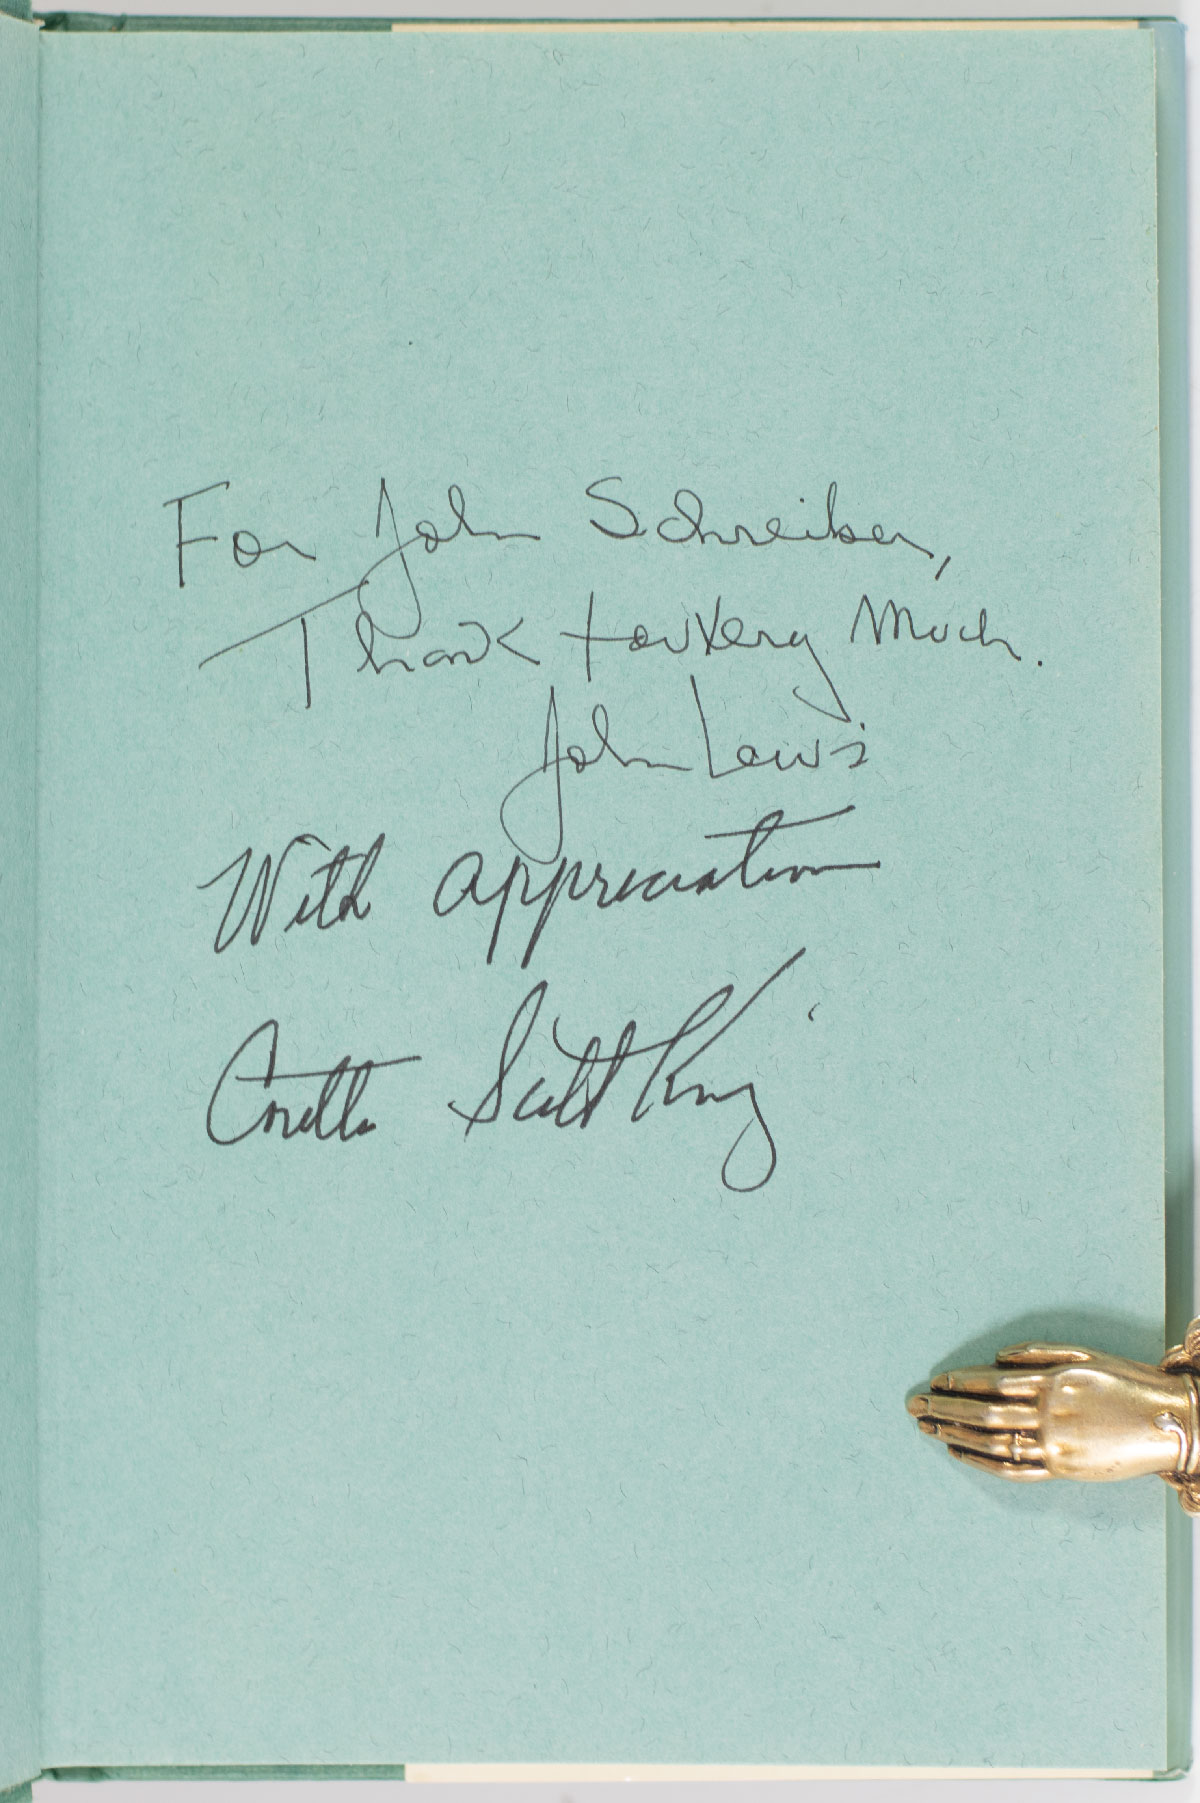 For John Schreiber,
Thank you very Much.
John Lewis
With appreciation
Coretta Scott King